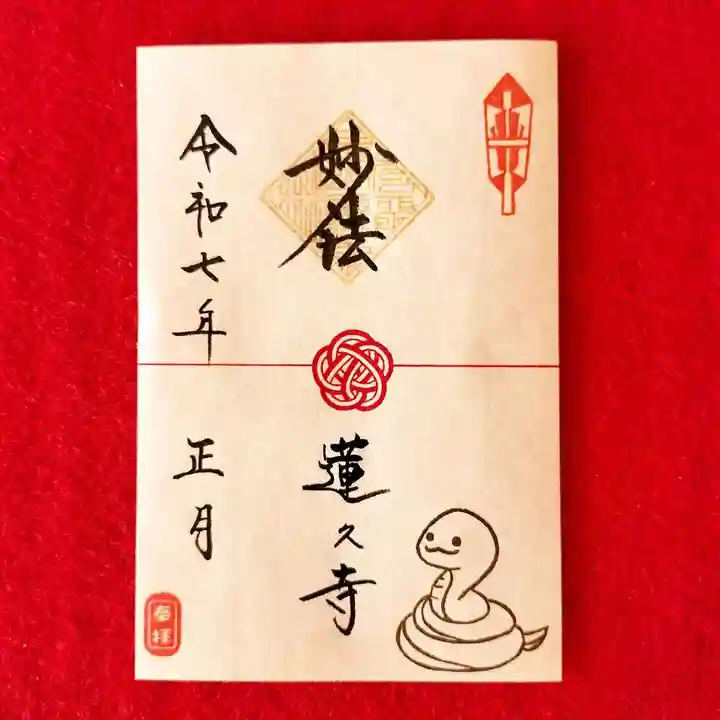 妙法
蓮久寺
令和七年
正月
奉拝